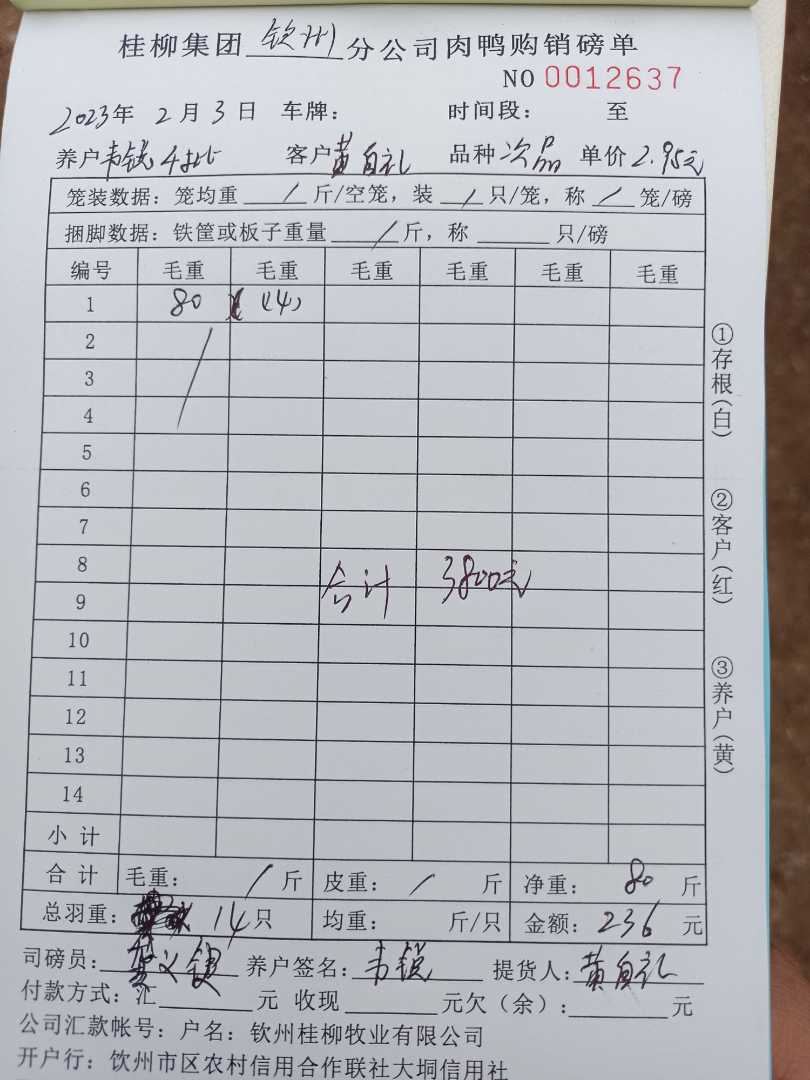 桂柳集团 钦州 分公司肉鸭购销磅单
NO 0012637
2023年 2月 3日 车牌： 时间段： 至
养户韦锁4批 客户黄自礼 品种次品 单价2.95元
笼装数据：笼均重 / 斤/空笼，装 / 只/笼，称 / 笼/磅
捆脚数据：铁筐或板子重量 / 斤，称 只/磅
编号 毛重 毛重 毛重 毛重 毛重 毛重
1 80 (14)
2
3
4
5
6
7
8
合计 3800元
9
10
11
12
13
14
小 计
合 计 毛重： / 斤 皮重： / 斤 净重： 80 斤
总羽重： 14只 均重： 斤/只 金额：236 元
司磅员： 养户签名：韦锁 提货人：黄自礼
付款方式：汇 元 收现 元欠（余）： 元
公司汇款帐号：户名：钦州桂柳牧业有限公司
开户行：钦州市区农村信用合作联社大垌信用社
①存根（白）
②客户（红）
③养户（黄）